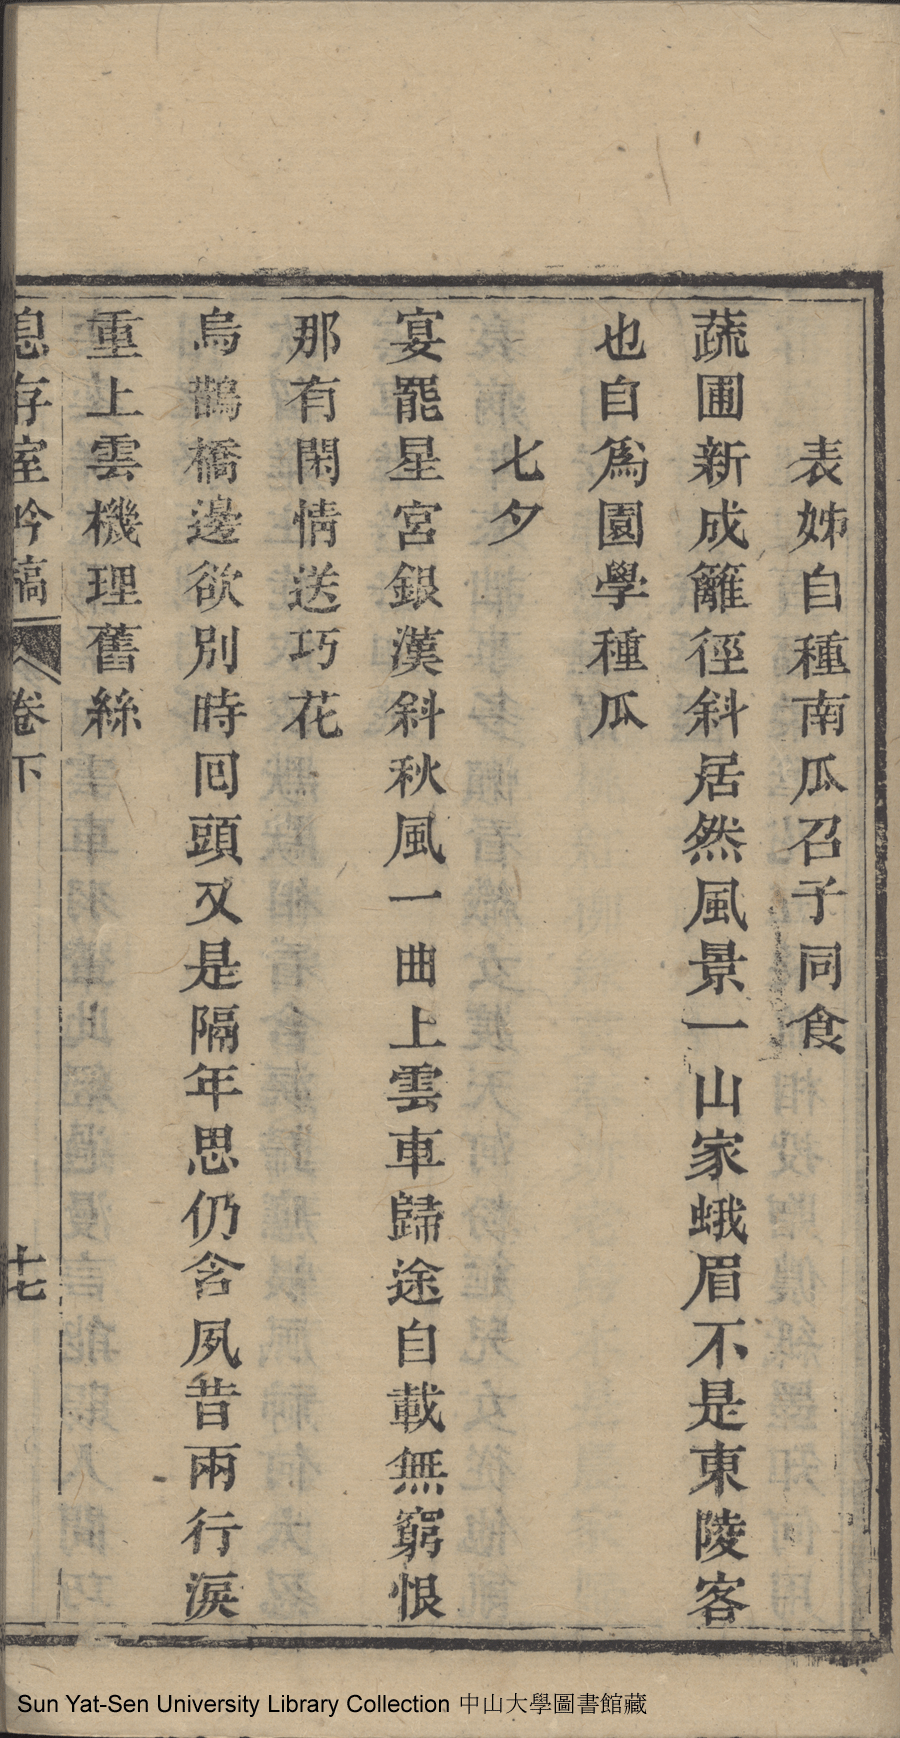 表姊自種南瓜召子同食
蔬圃新成籬徑斜居然風景一山家蛾眉不是東陵客
也自爲園學種瓜
七夕
宴罷星宮銀漢斜秋風一曲上雲車歸途自載無窮恨
那有閑情送巧花
烏鵲橋邊欲別時囘頭又是隔年思仍含夙昔兩行淚
重上雲機理舊絲
息存室吟稿 卷下 十七
Sun Yat-Sen University Library Collection 中山大學圖書館藏